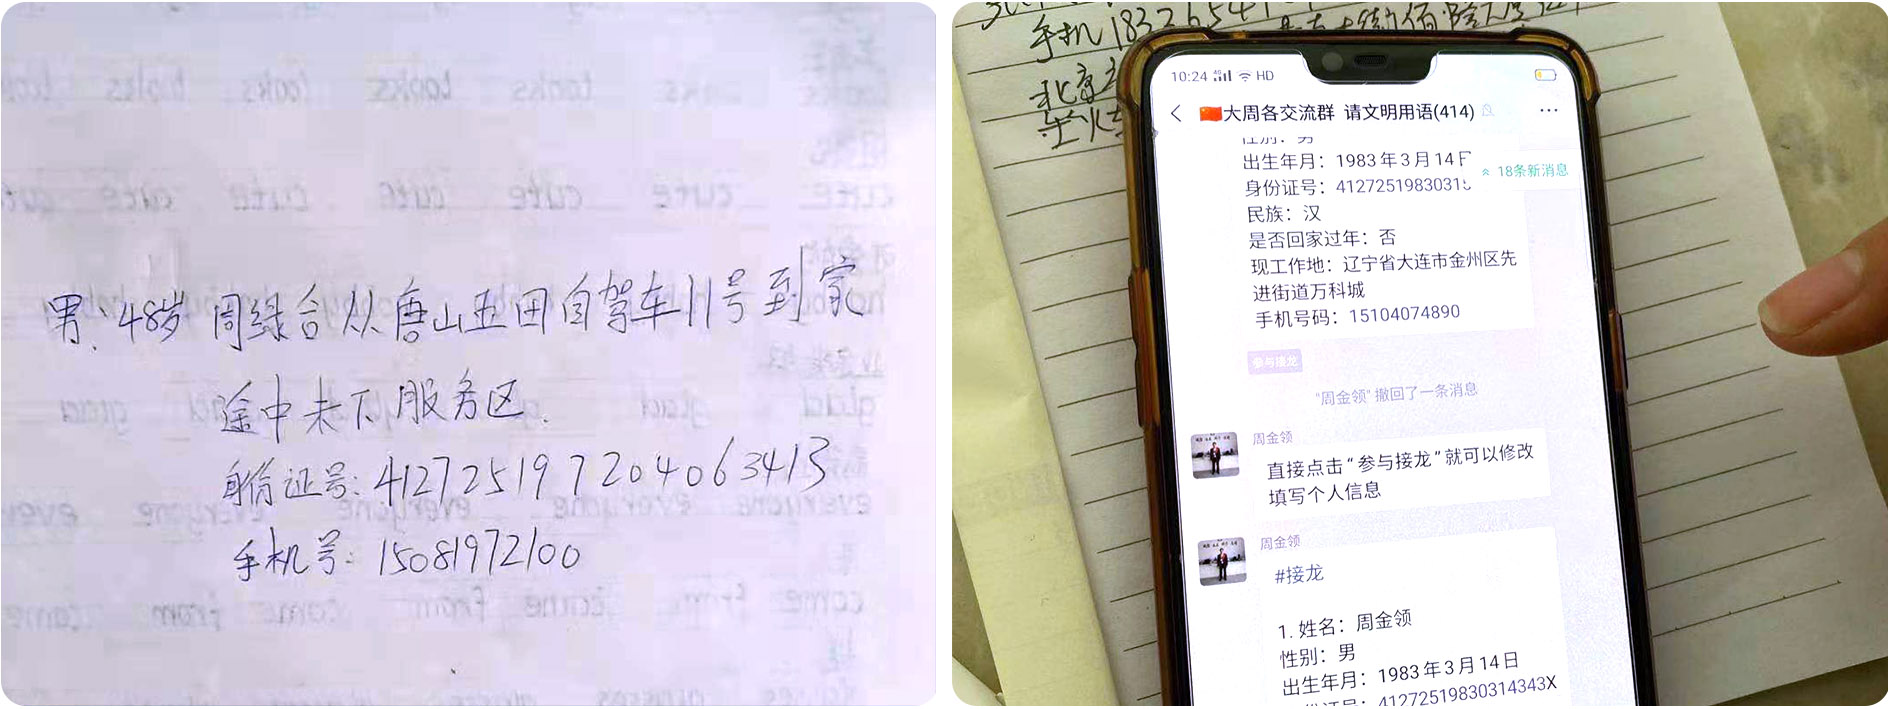 男、48岁 周绿合从唐山五田自驾车11号到家
途中未下服务区.
身份证号: 412725197204063413
手机号: 15081972100
手机
北京
10:24 HD
大周各交流群 请文明用语(414)
性别：男
出生年月：1983年3月14日
18条新消息
身份证号：4127251983031
民族：汉
是否回家过年：否
现工作地：辽宁省大连市金州区先
进街道万科城
手机号码：15104074890
参与接龙
"周金领"撤回了一条消息
周金领
直接点击“参与接龙”就可以修改
填写个人信息
周金领
#接龙
1. 姓名：周金领
性别：男
出生年月：1983年3月14日
身份证号：41272519830314343X